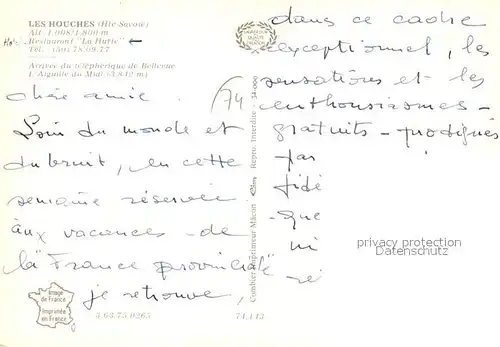 LES HOUCHES (Hte-Savoie)
Alt. 1.008/1.800 m
Restaurant "La Hutte"
Tél. : (50) 78.09.77
Arrivée du téléphérique de Bellevue
L'Aiguille du Midi (3.842 m)
chère amie.
(74
Loin du monde et
du bruit, en cette
semaine réservée
aux vacances de
la "France provinciale"
je retrouve,
Image de France
Imprimée en France
3.63.75.0265
74.143
Combier Imprimeur Mâcon
Repro. Interdite
dans ce cadre
exceptionnel, les
sensations et les
enthousiasmes -
gratuits - prodigués
par
fidé
que
ni
privacy protection
Datenschutz